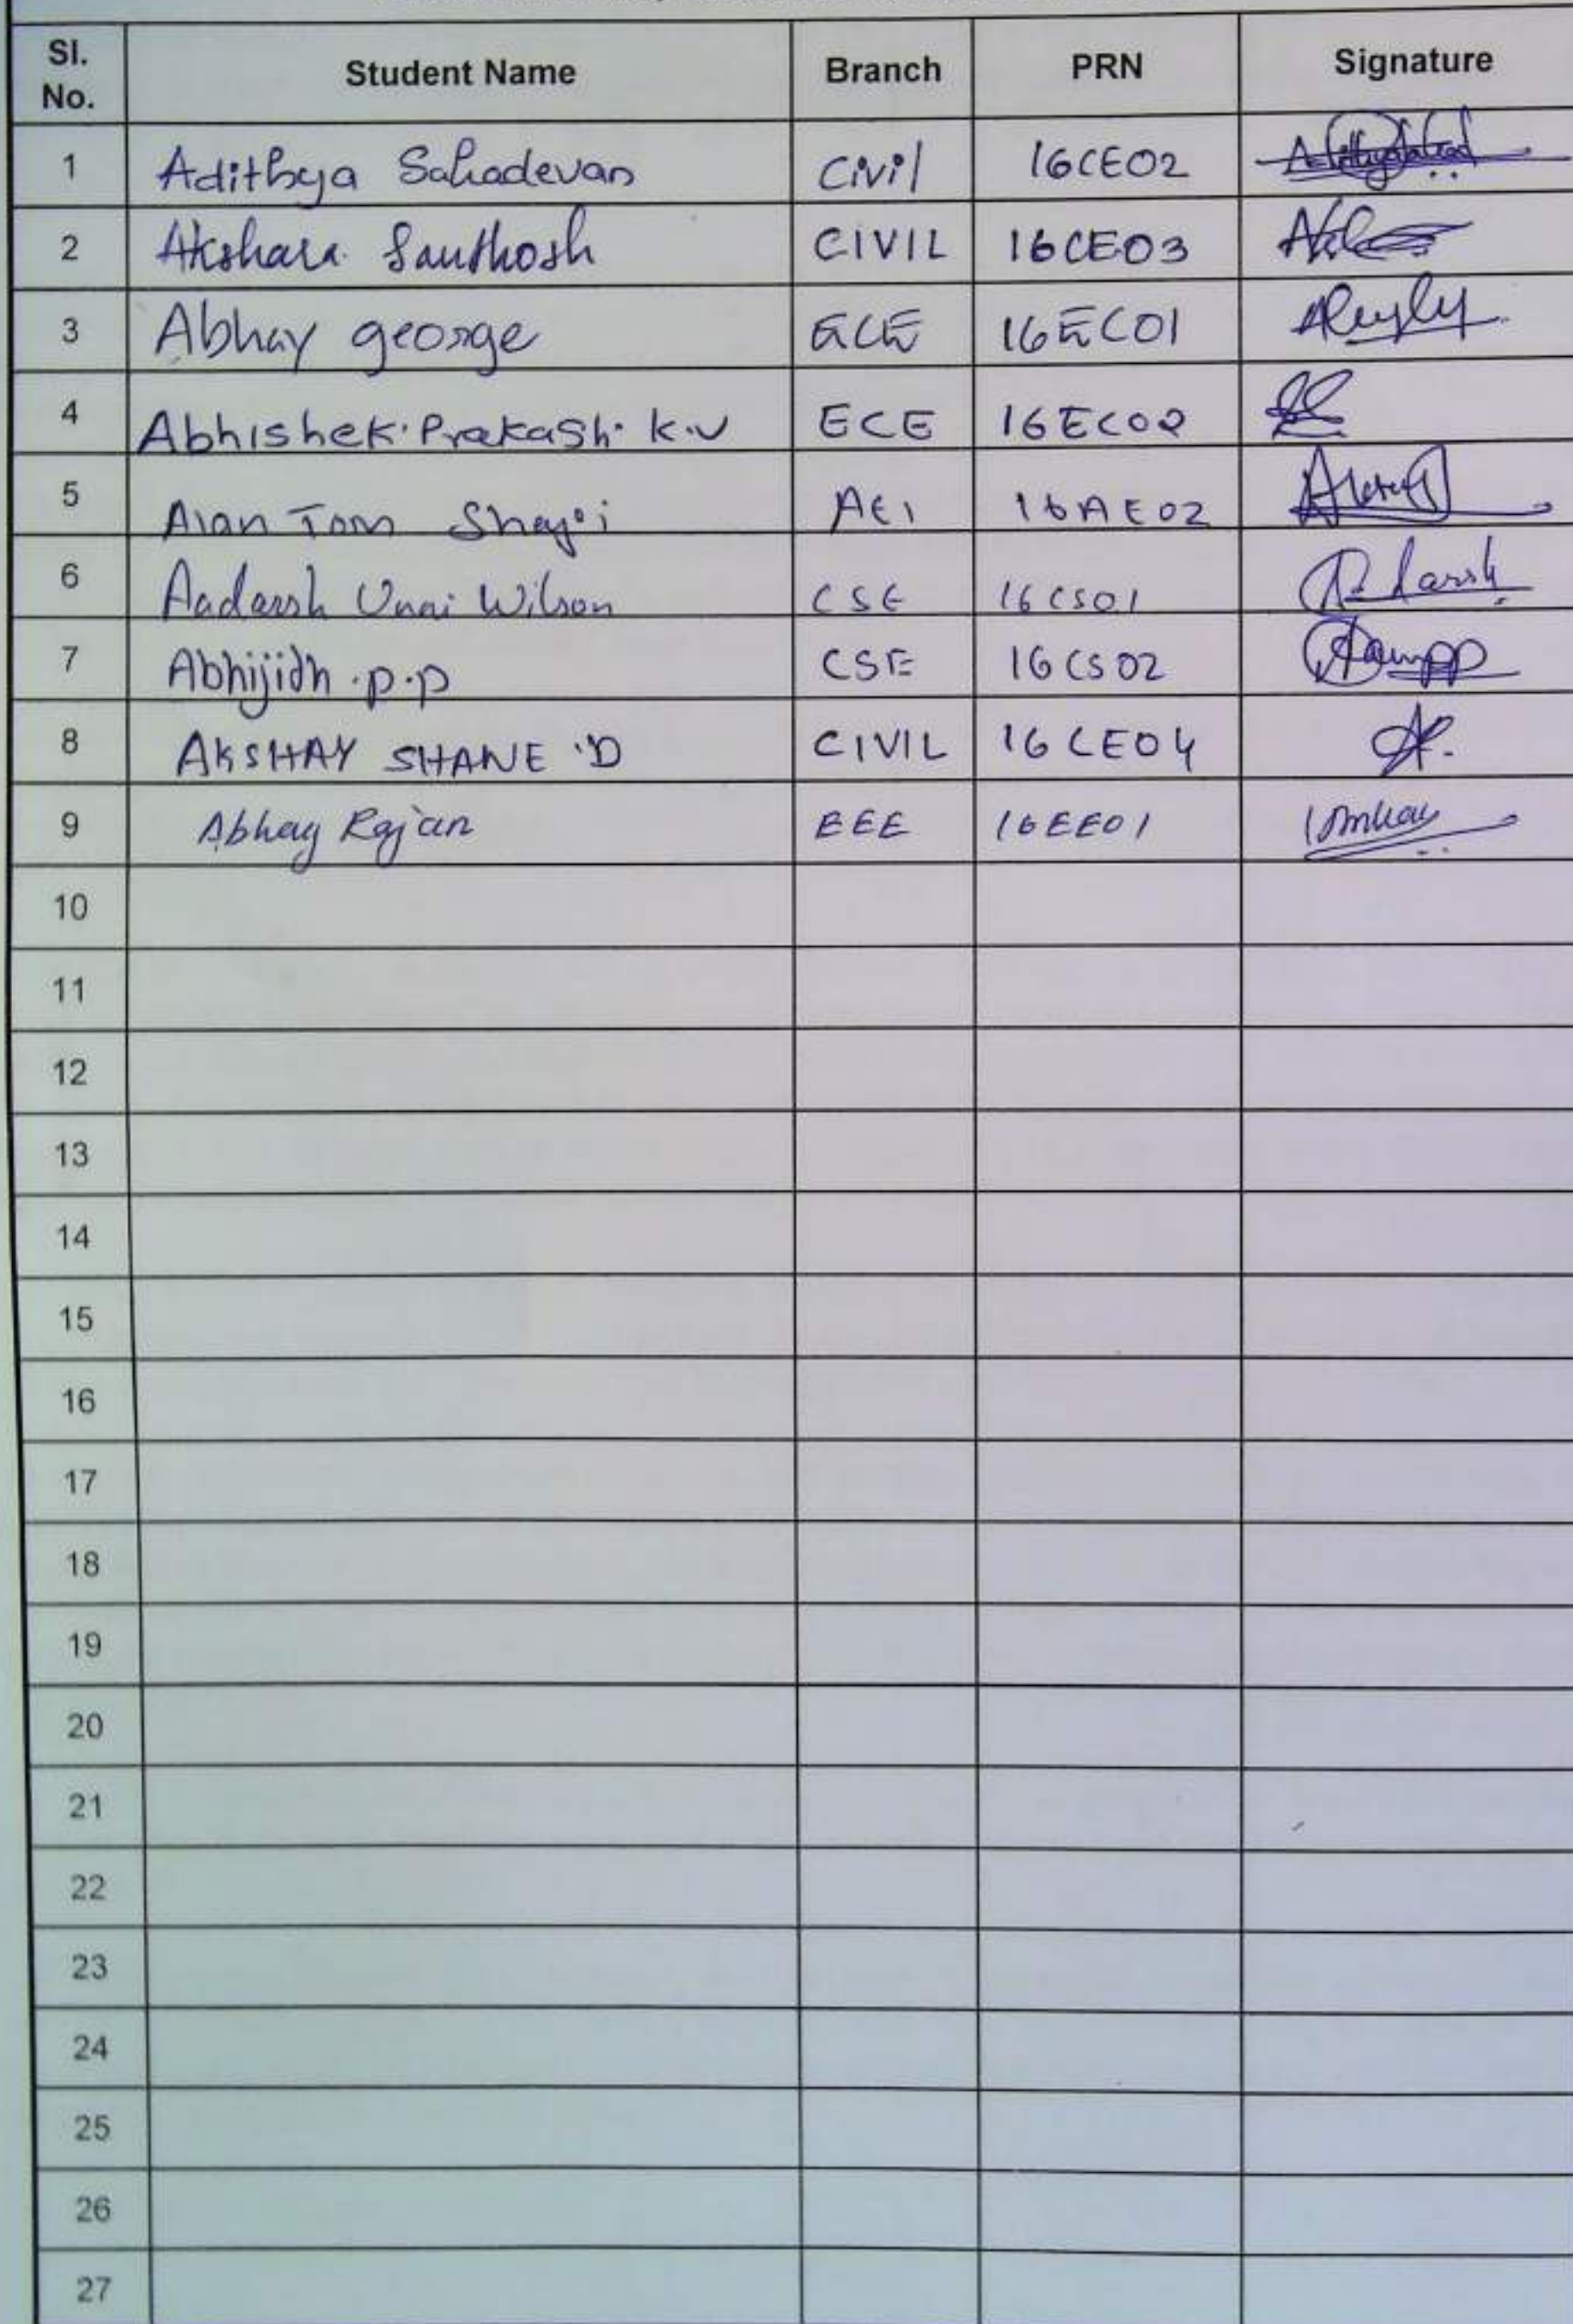 Sl. No. Student Name Branch PRN Signature
1 Adithya Sahadevan Civil 16CE02
2 Akshara Santhosh CIVIL 16CE03
3 Abhay george ECE 16EC01
4 Abhishek.Prakash.k.v ECE 16EC02
5 Alan Tom Shaji AEI 16AE02
6 Aadarsh Unni Wilson CSE 16CS01 Adarsh
7 Abhijidh.p.p CSE 16CS02
8 AKSHAY SHANE .D CIVIL 16CE04
9 Abhay Rajan EEE 16EE01
10
11
12
13
14
15
16
17
18
19
20
21
22
23
24
25
26
27